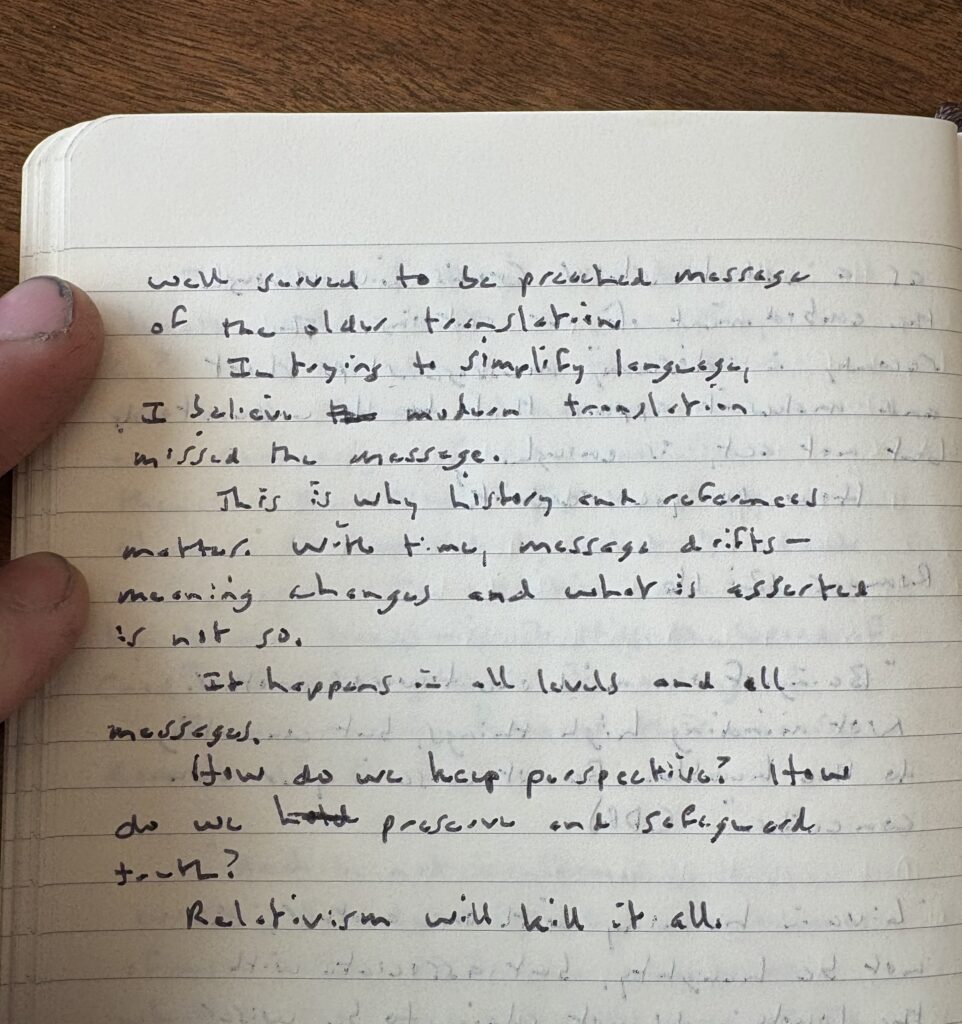 well served to be preached message
of the older translation
In trying to simplify language,
I believe the modern translation
missed the message.
This is why history and references
matter. With time, message drifts —
meaning changes and what is asserted
is not so.
It happens in all levels and all
messages.
How do we keep perspective? How
do we hold preserve and safeguard
truth?
Relativism will kill it all.